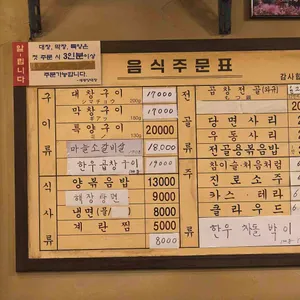 알립니다
대창, 막창, 특양은
첫 주문 시 3인분이상
주문가능합니다.
음식주문표
감사
구이류
대창구이 17000
막창구이 17000
200g
특양구이 20000
마늘소갈비살 18.000
한우곱창구이 19000
식사류
양볶음밥 13000
해장라면 9000
냉면 8000
계란찜 5000
8000
전골류
곱창전골
당면사리
우동사리
전골용볶음밥
주류
참이슬·처음처럼
진로소주
카스·테라
클라우드
한우 차돌박이